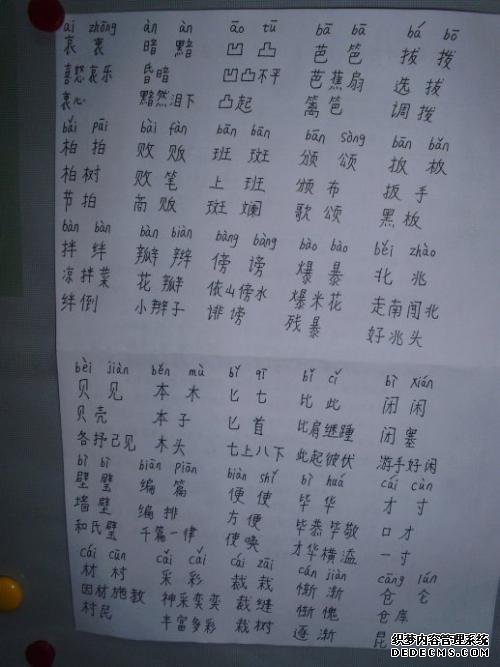 āi zhōng àn àn āo tū bā bā bá bō
哀 衷 暗 黯 凹 凸 芭 笆 拔 拨
喜怒哀乐 昏暗 凹凸不平 芭蕉扇 选拔
衷心 黯然泪下 凸起 篱笆 调拨
bǎi pāi bài fàn bān bān bān sòng bān bǎn
柏 拍 败 贩 班 斑 颁 颂 扳 板
柏树 败笔 上班 颁布 扳手
节拍 商贩 斑斓 歌颂 黑板
bàn bàn bàn biàn bàng bàng bào bào běi zhào
拌 绊 瓣 辫 傍 谤 爆 暴 北 兆
凉拌菜 花瓣 依山傍水 爆米花 走南闯北
绊倒 小辫子 诽谤 残暴 好兆头
bèi jiàn běn mù bǐ qī bǐ cǐ bì xián
贝 见 本 木 匕 七 比 此 闭 闲
贝壳 本子 匕首 比肩继踵 闭塞
各抒己见 木头 七上八下 此起彼伏 游手好闲
bì bì biān piān biàn shǐ bì huá cái cùn
壁 璧 编 篇 便 使 毕 华 才 寸
墙壁 编排 方便 毕恭毕敬 口才
和氏璧 千篇一律 使唤 才华横溢 一寸
cái cūn cǎi cǎi cái zāi cán jiàn cāng lún
材 村 采 彩 裁 栽 惭 渐 仓 仑
因材施教 神采奕奕 裁缝 惭愧 仓库
村民 丰富多彩 栽树 逐渐 昆
织梦内容管理系统
DEDECMS.COM